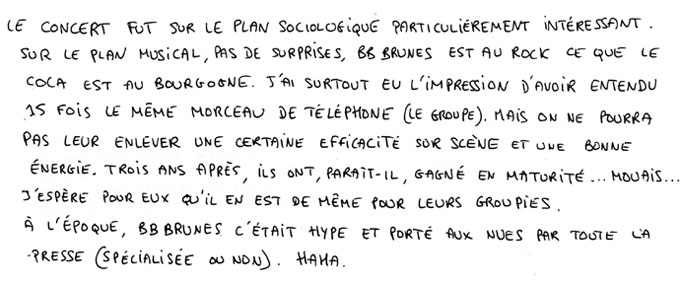 LE CONCERT FUT SUR LE PLAN SOCIOLOGIQUE PARTICULIÈREMENT INTÉRESSANT.
SUR LE PLAN MUSICAL, PAS DE SURPRISES, BB BRUNES EST AU ROCK CE QUE LE
COCA EST AU BOURGOGNE. J'AI SURTOUT EU L'IMPRESSION D'AVOIR ENTENDU
15 FOIS LE MÊME MORCEAU DE TÉLÉPHONE (LE GROUPE). MAIS ON NE POURRA
PAS LEUR ENLEVER UNE CERTAINE EFFICACITÉ SUR SCÈNE ET UNE BONNE
ÉNERGIE. TROIS ANS APRÈS, ILS ONT, PARAÎT-IL, GAGNÉ EN MATURITÉ... MOUAIS...
J'ESPÈRE POUR EUX QU'IL EN EST DE MÊME POUR LEURS GROUPIES.
À L'ÉPOQUE, BB BRUNES C'ÉTAIT HYPE ET PORTÉ AUX NUES PAR TOUTE LA
PRESSE (SPÉCIALISÉE OU NON). HAHA.